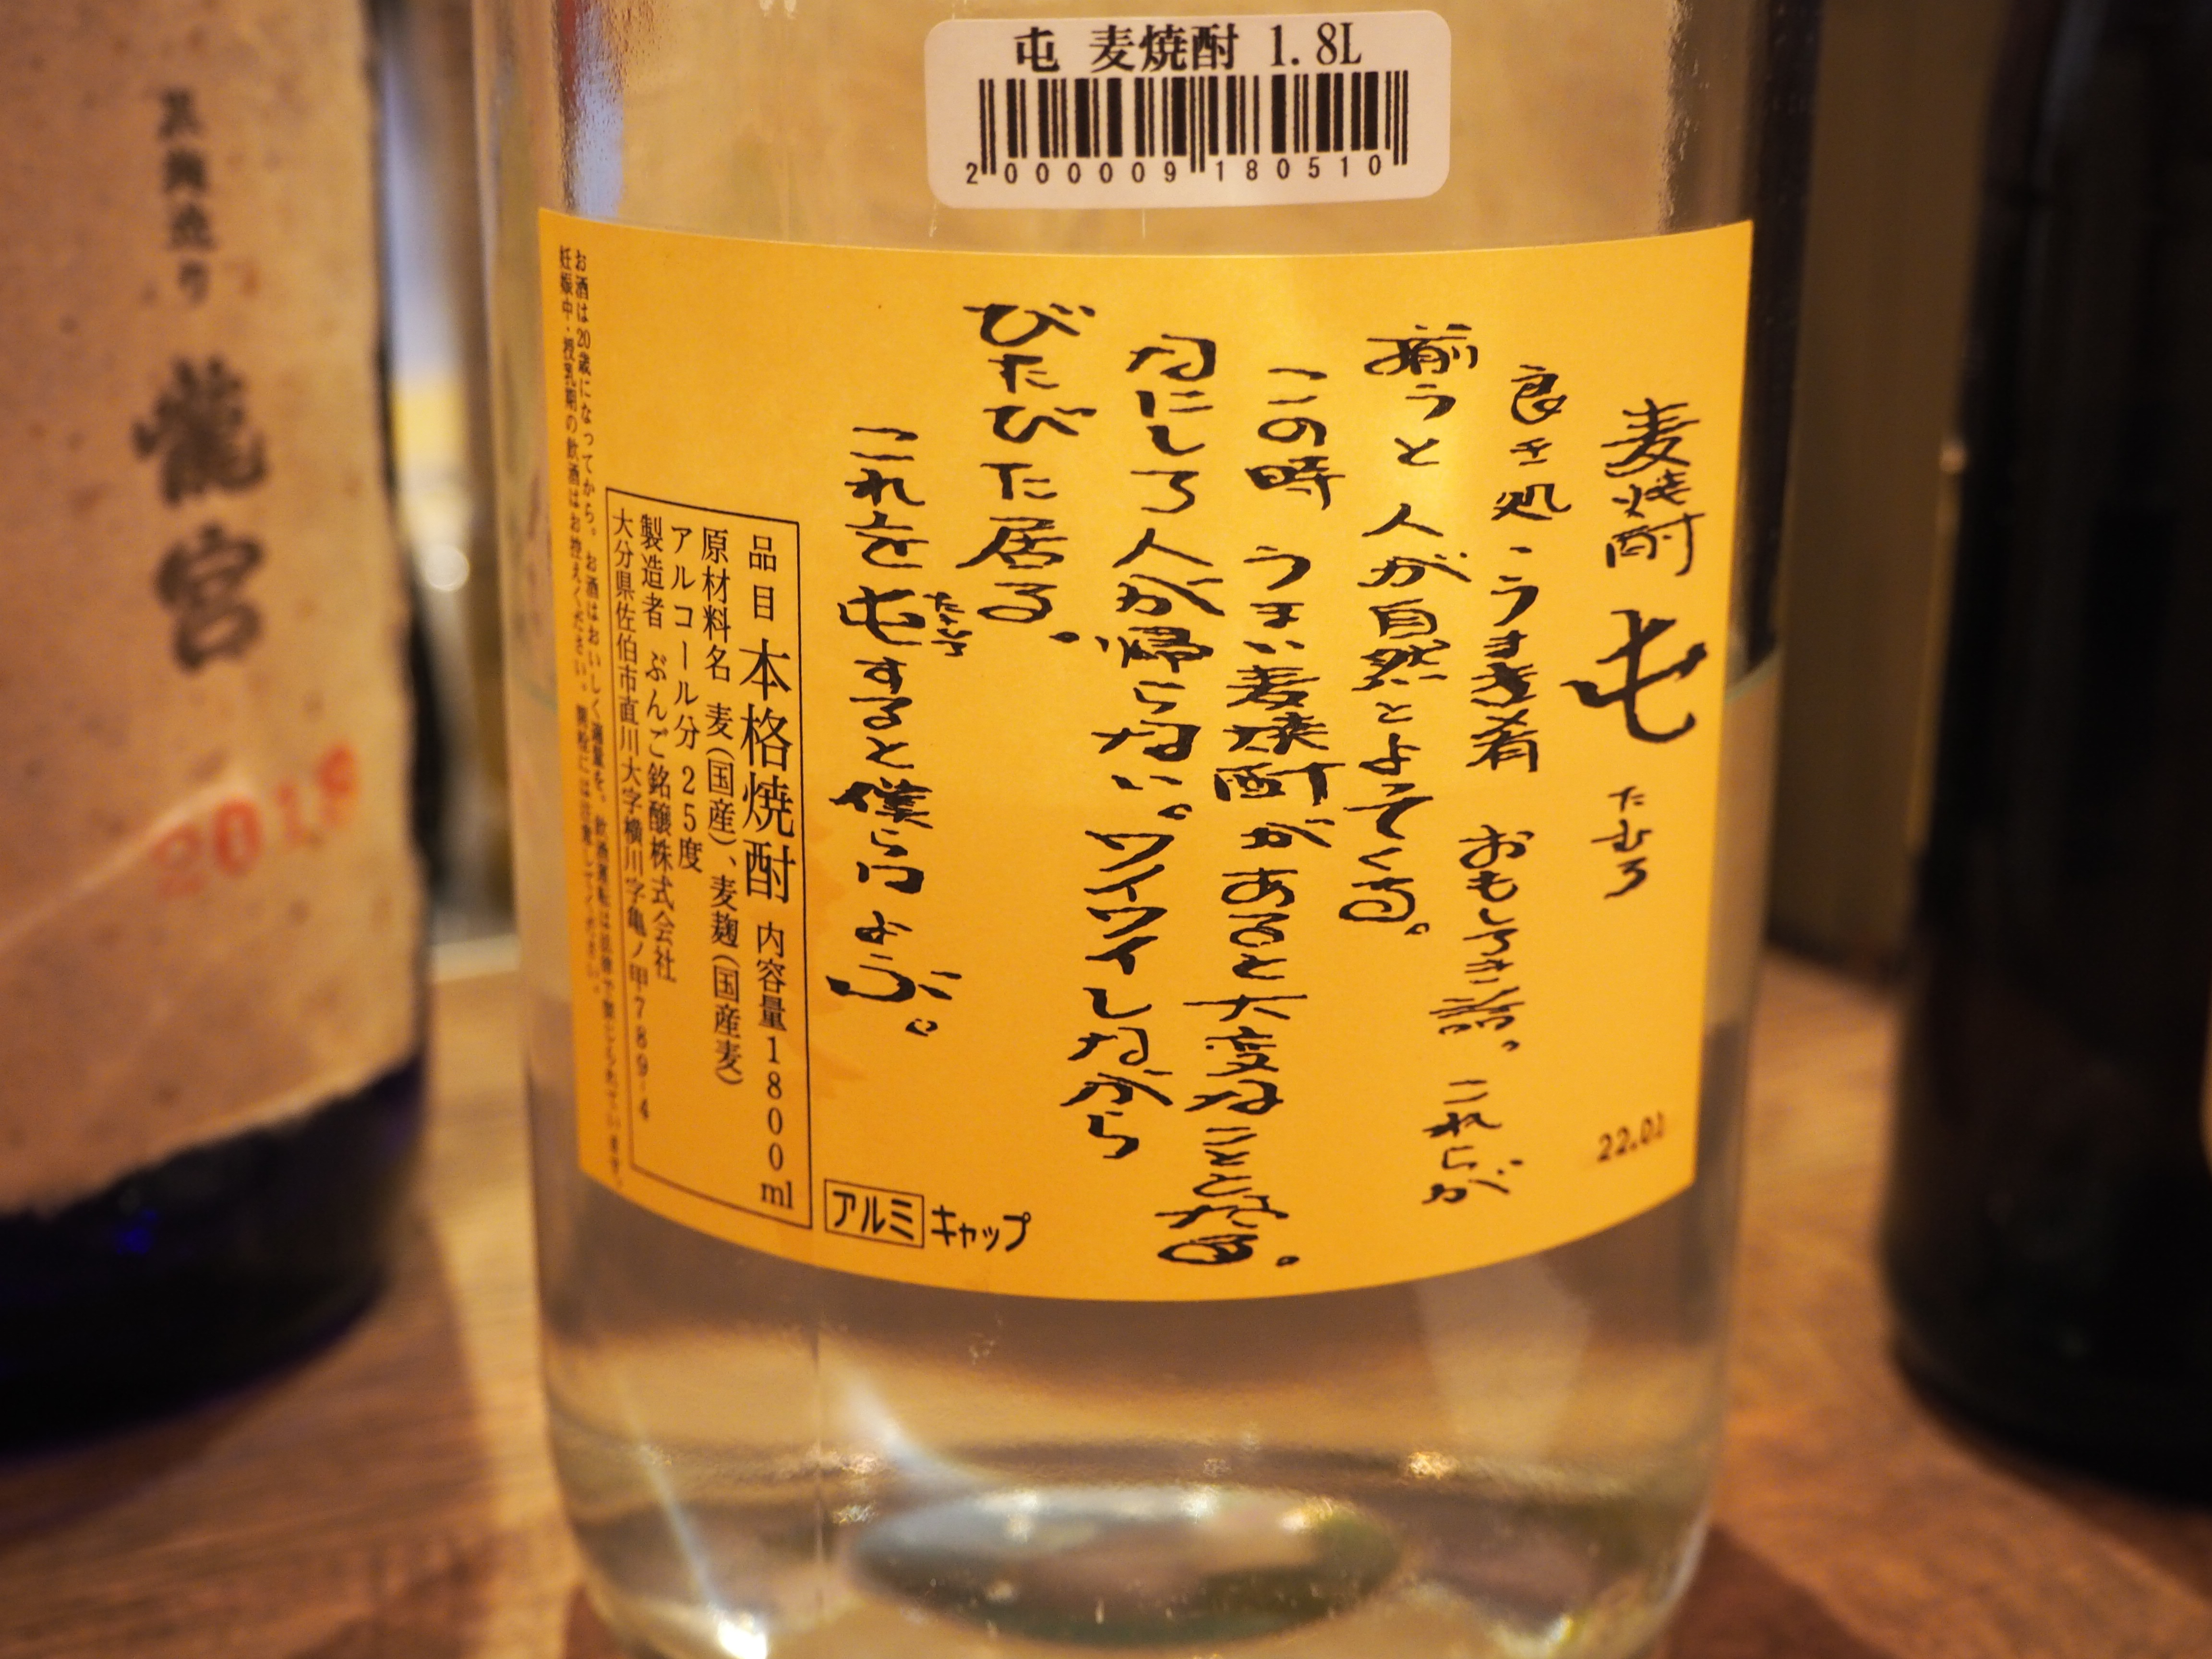 屯 麦焼酎 1.8L
2000009180510
麦焼酎 屯 たむろ
良き処、うまき肴 おもしろき話。これらが
揃うと人が自然とよってくる。
この時 うまい麦焼酎があると大変なこととなる。
なにしろ人が帰らない。ワイワイしながら
びたびた居る。
これを屯すると僕らはよぶ。
たむろ
22.01
品目 本格焼酎 内容量1800ml
原材料名 麦(国産)、麦麹(国産麦)
アルコール分 25度
製造者 ぶんご銘醸株式会社
大分県佐伯市直川大字横川字亀ノ甲789-4
お酒は20歳になってから。お酒はおいしく適量を。飲酒運転は法律で禁じられています。
妊娠中・授乳期の飲酒はお控えください。開栓には注意してください。
アルミキャップ
龍宮
2019